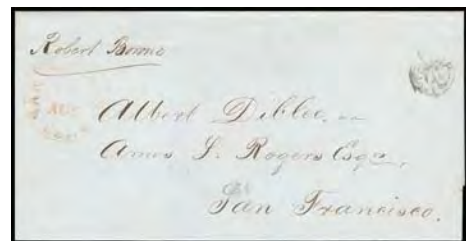 Robert Bowne
AUG
Albert Diblee, or
Amos S. Rogers Esqr,
San Francisco.